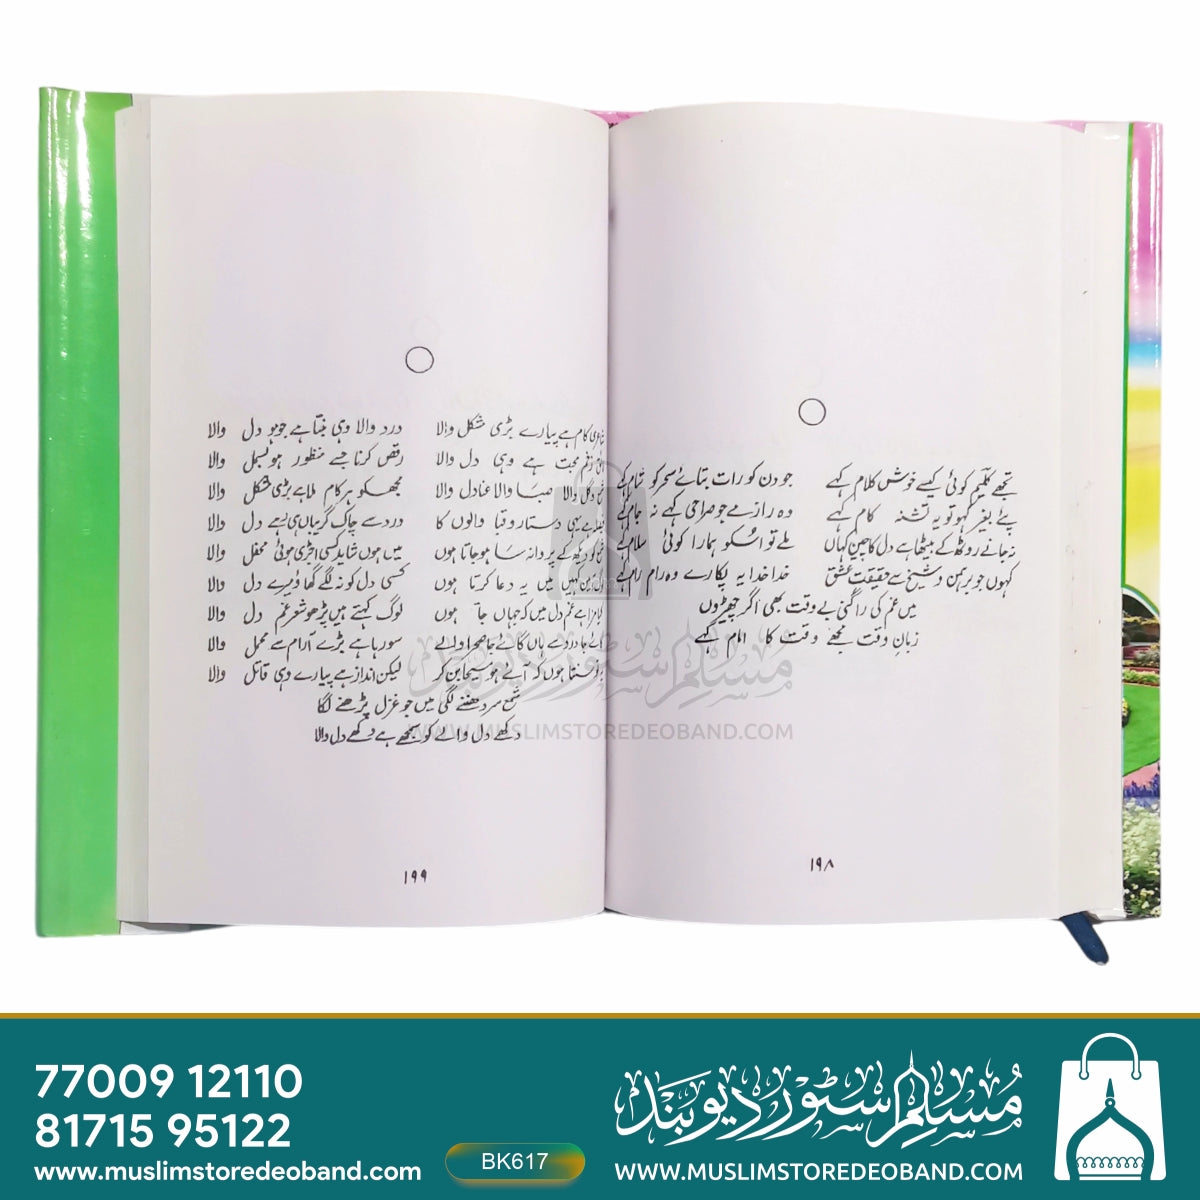 تجھے کلیم کوئی کیسے خوش کلام کہے جو دن کو رات بتائے سحر کو شام کہے
پئے بغیر کہو تو یہ تشنہ کام کہے وہ راز ہے جو صراحی کہے نہ جام کہے
نہ جانے روٹھ کے بیٹھا ہے دل کا چین کہاں ملے تو اسکو ہمارا کوئی سلام کہے
کہوں جو برہمن و شیخ سے حقیقتِ عشق خدا خدا یہ پکارے وہ رام رام کہے
میں غم کی راگنی بے وقت بھی اگر چھیڑوں
زبانِ وقت مجھے وقت کا امام کہے
۱۹۸
کام ہے پیارے بڑی شکل والا درد والا وہی بنتا ہے جو ہو دل والا
زخم محبت ہے وہی دل والا رقص کرنا جسے منظور ہو بسمل والا
والا صبا والا عنادل والا مجھکو ہر کام ملا ہے بڑی شکل والا
یہی دستار و قبا والوں کا درد سے چاک گریباں ہی نہیں دل والا
دیکھ کے پروانہ سا ہو جاتا ہوں میں ہوں شاید کسی اجڑی ہوئی محفل والا
میں یہ دعا کرتا ہوں کسی دل کو نہ لگے گھاؤ میرے دل والا
ہے غم دل میں کہ جہاں جاتا ہوں لوگ کہتے ہیں پڑھو شعر غم دل والا
جا درد سے ہاں گائے جا صحرا والے سو رہا ہے بڑے آرام سے محمل والا
سنتا ہوں کہ آئے ہو مسیحا بن کر لیکن انداز ہے پیارے وہی قاتل والا
شمع سر دھننے لگی میں جو غزل پڑھنے لگا
دکھے دل والے کو سمجھے ہے دکھے دل والا
۱۹۹
WWW.MUSLIMSTOREDEOBAND.COM
مسلم سٹور دیوبند
77009 12110
81715 95122
www.muslimstoredeoband.com
BK617
مسلم سٹور دیوبند
WWW.MUSLIMSTOREDEOBAND.COM